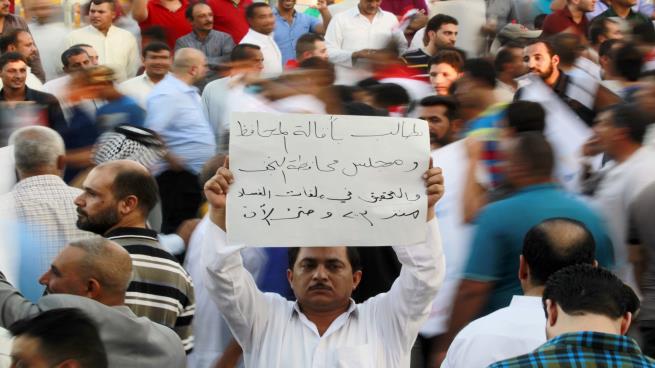 نطالب بأقالة المحافظ
ومجلس محافظة النجف
والتحقيق في ملفات الفساد
منذ ٢٠٠٣ وحتى الأن